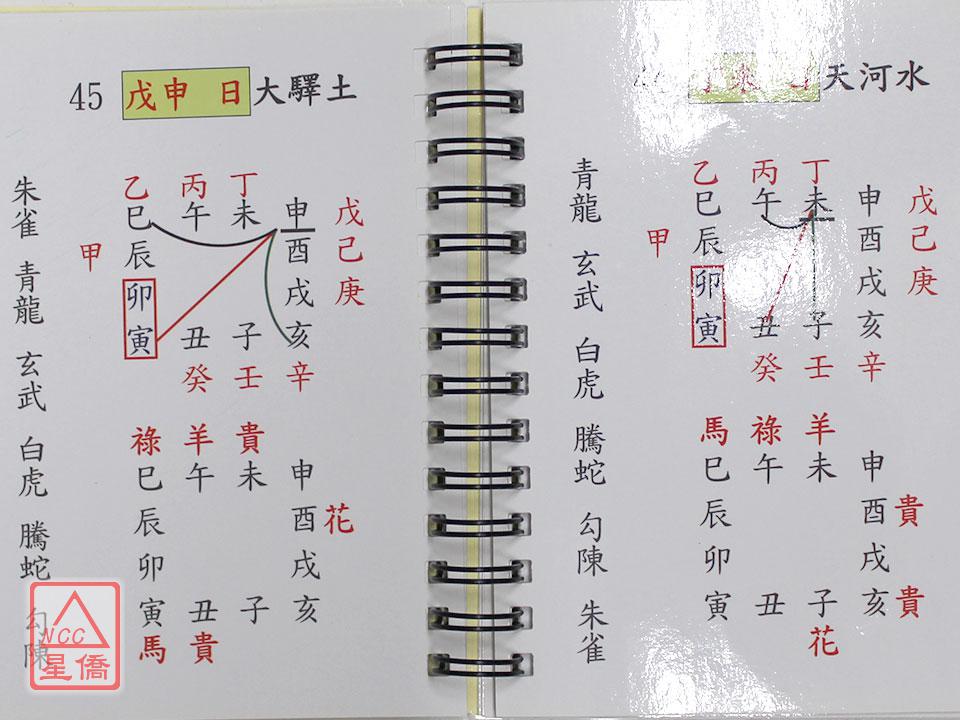 45 戊申 日 大驛土
朱雀
青龍
玄武
白虎
騰蛇
勾陳
乙 丙 丁
巳 午 未 申 戊
甲 辰 酉 己
卯 戌 庚
寅 丑 子 亥
癸 壬 辛
祿 羊 貴
巳 午 未 申
辰 酉 花
卯 戌
寅 丑 子 亥
馬 貴
天河水
青龍
玄武
白虎
騰蛇
勾陳
朱雀
乙 丙 丁
巳 午 未 申 戊
甲 辰 酉 己
卯 戌 庚
寅 丑 子 亥
癸 壬 辛
馬 祿 羊
巳 午 未 申
辰 酉 貴
卯 戌
寅 丑 子 亥 貴
花
NCC
星僑